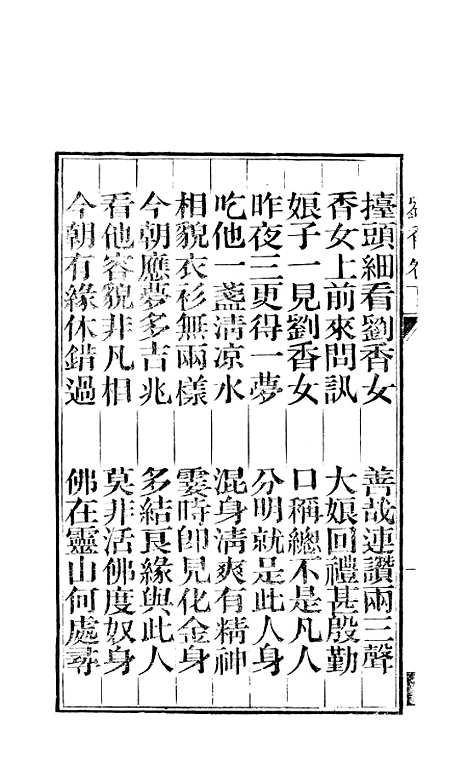 擡頭細看劉香女　善哉連讚兩三聲
香女上前來問訊　大娘回禮甚殷勤
娘子一見劉香女　口稱總不是凡人
昨夜三更得一夢　分明就是此人身
吃他一盞淸涼水　混身淸爽有精神
相貌衣衫無兩樣　霎時卽見化金身
今朝應夢多吉兆　多結良緣與此人
看他容貌非凡相　莫非活佛度奴身
今朝有緣休錯過　佛在靈山何處尋